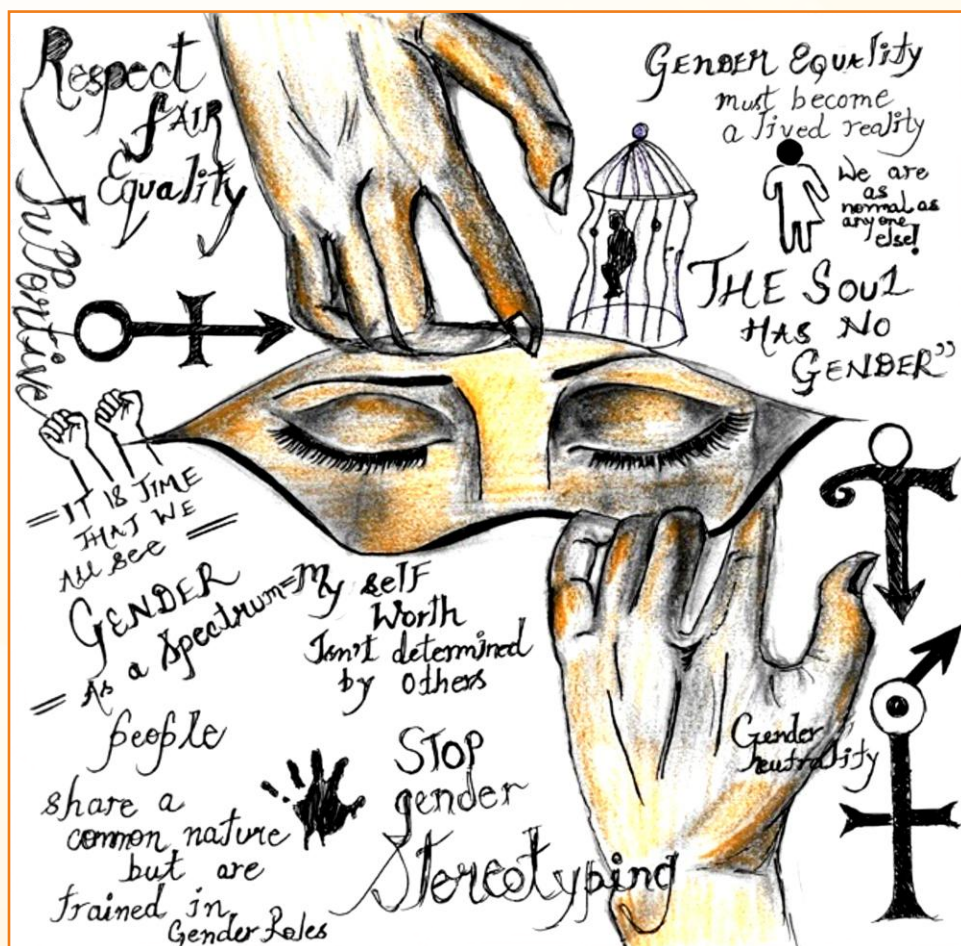 Respect
fAIR
Equality
Supportive
GENDER EQUALITY
must become
a lived reality
We are
as
normal as
any one
else!
THE SOUL
HAS NO
GENDER"
IT IS TIME
THAT WE
All see
GENDER
As a Spectrum
My self
Worth
Isn't determined
by others
people
share a
common nature
but are
trained in
Gender Roles
STOP
gender
Stereotyping
Gender
neutrality